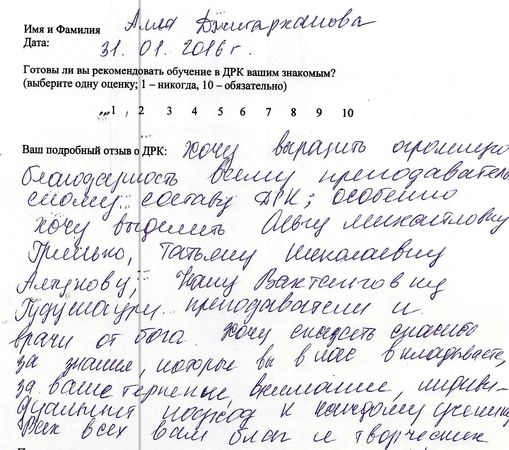 Имя и Фамилия Алла Джигарханова
Дата: 31. 01. 2016 г.
Готовы ли вы рекомендовать обучение в ДРК вашим знакомым?
(выберите одну оценку; 1 – никогда, 10 – обязательно)
1 2 3 4 5 6 7 8 9 10
Ваш подробный отзыв о ДРК: Хочу выразить огромную
благодарность всему преподаватель
скому составу ДРК; особенно
хочу выделить Ольгу Михайловну
Гринько, Татьяну Николаевну
Алпунову, Нану Вахтенговну
Гудушаури преподаватели и
врачи от бога. Хочу сказать спасибо
за знания, которые вы в нас вкладываете,
за ваше терпение, внимание, индиви-
дуальный подход к каждому ученику
Вам всех вам благ и творческих